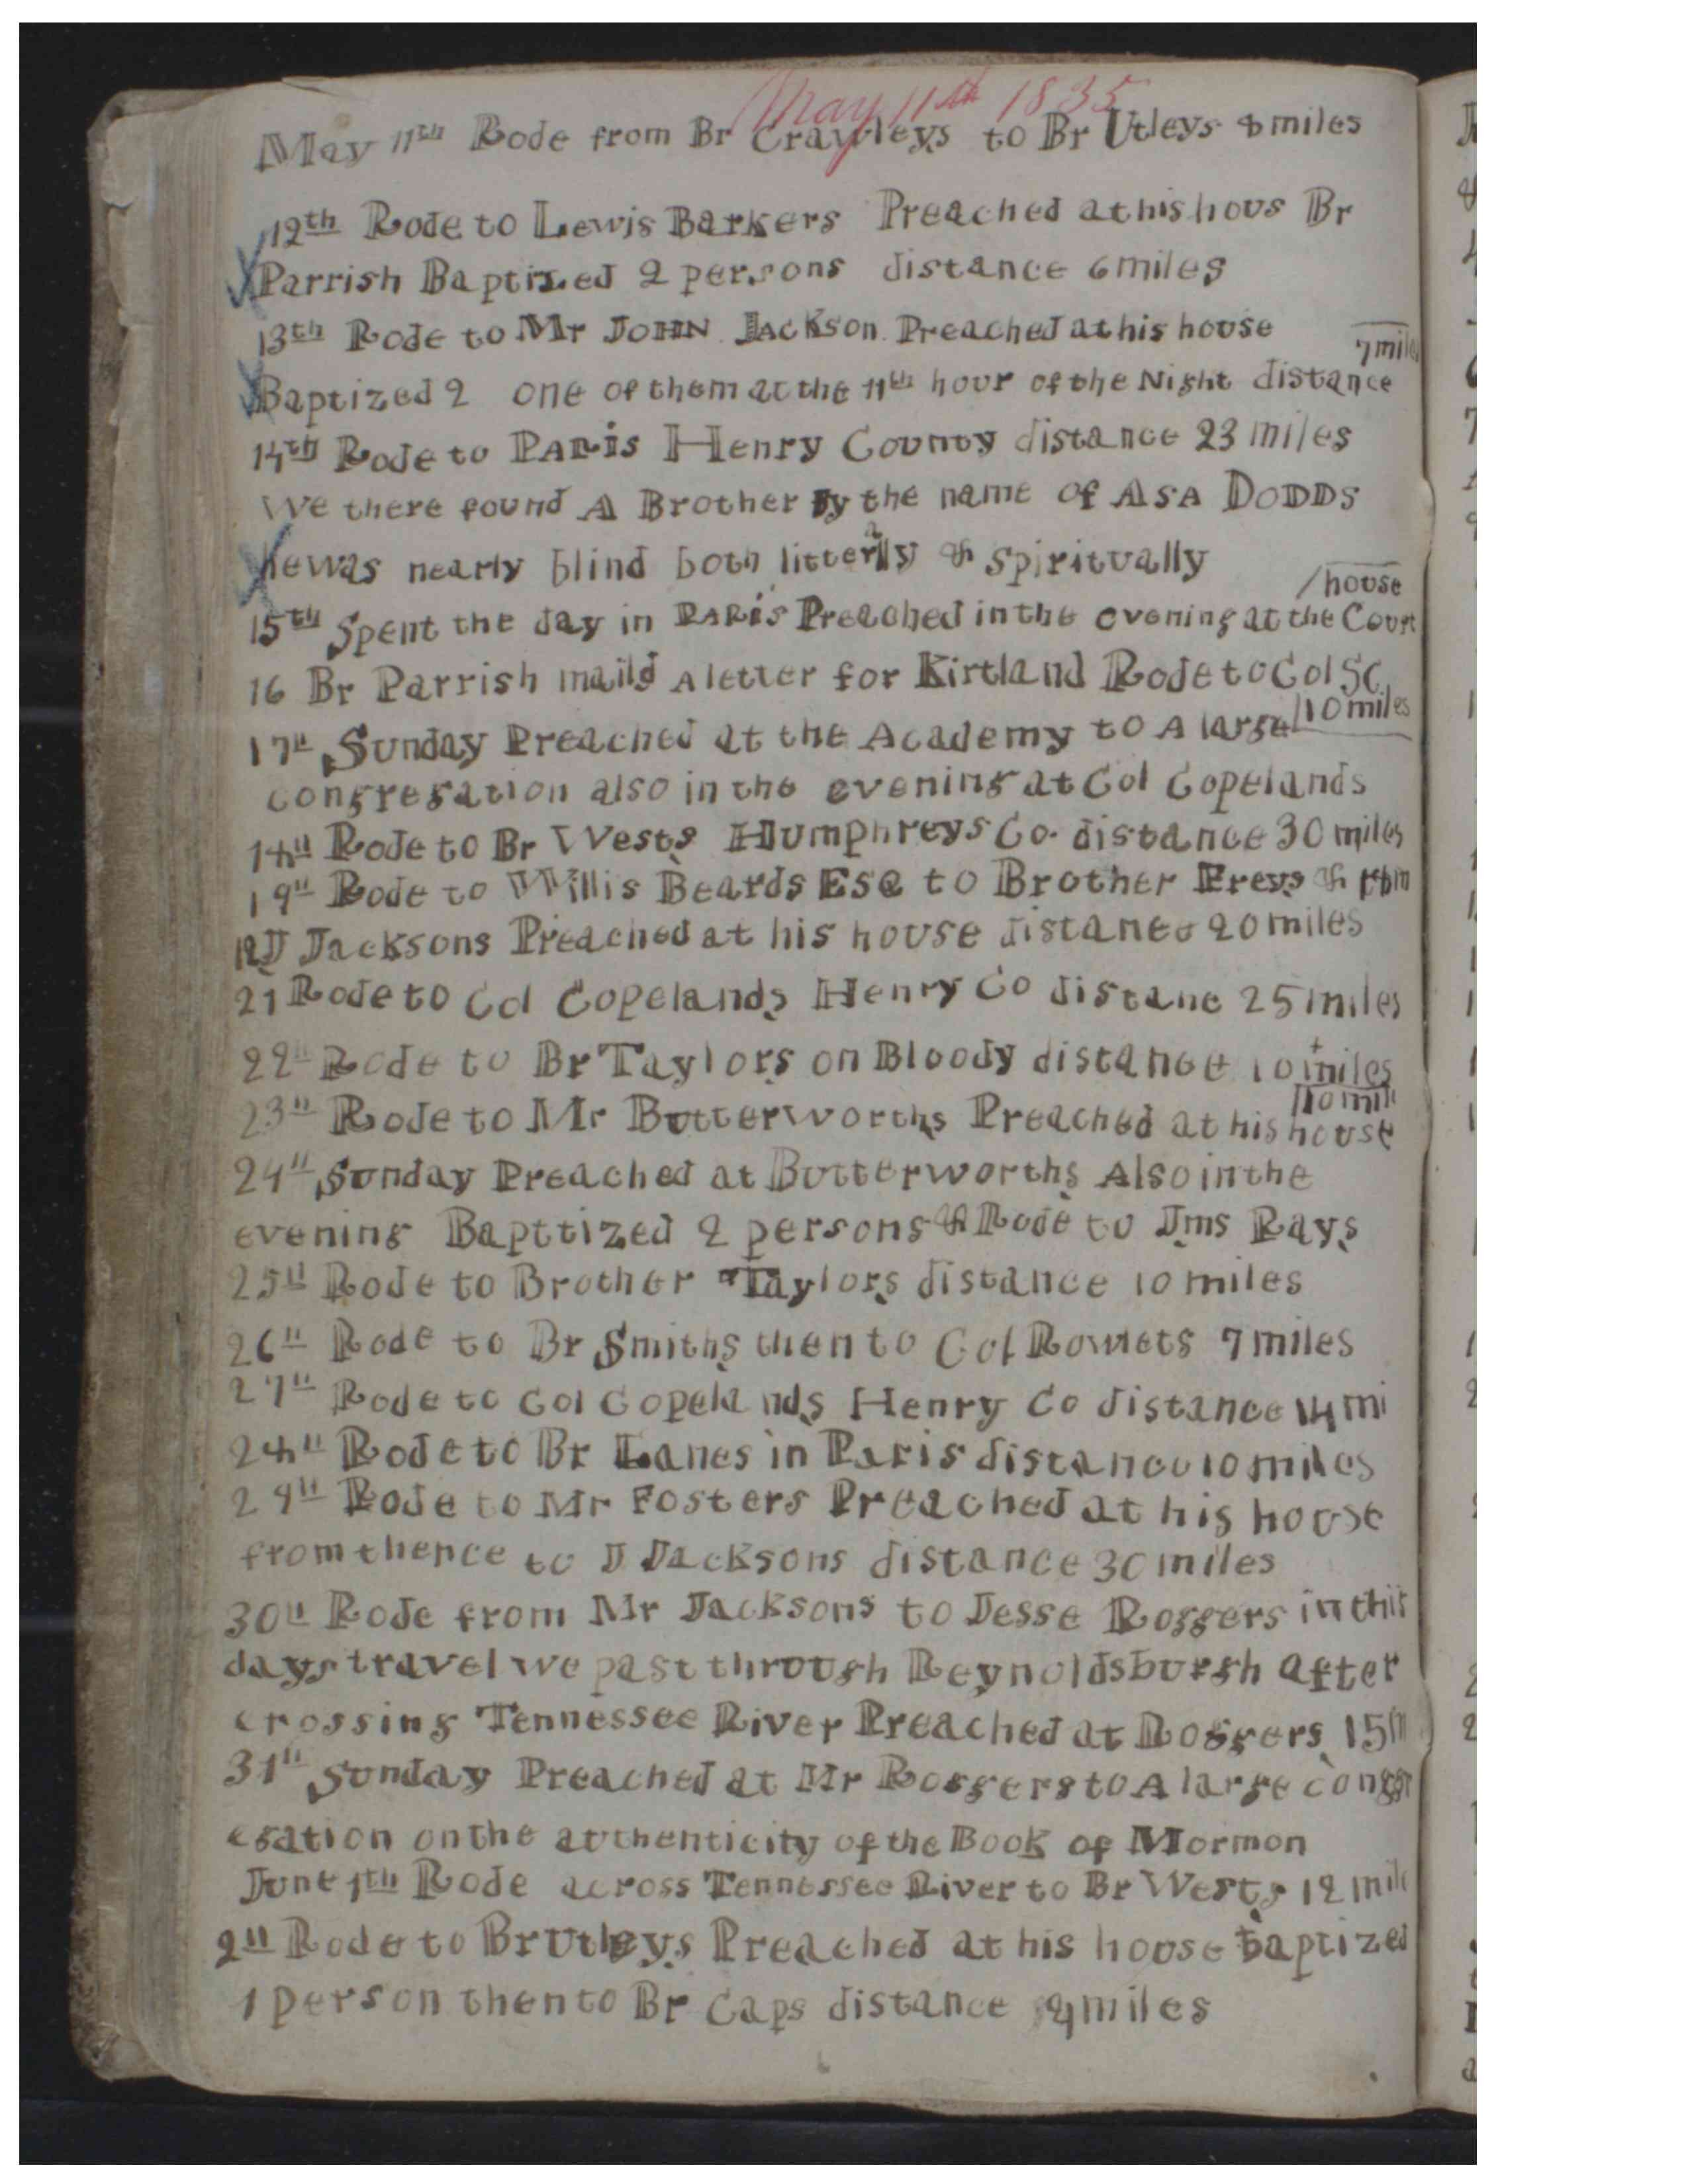 May 11th 1835
May 11th Rode from Br Crawleys to Br Utleys 8 miles
12th Rode to Lewis Barkers Preached at his hous Br
Parrish Baptized 2 persons distance 6 miles
13th Rode to Mr JOHN JACKSON Preached at his house
7 miles
Baptized 2 one of them at the 11th hour of the Night distance
14th Rode to PARIS Henry County distance 23 miles
We there found A Brother By the name of ASA DODDS
he was nearly blind both litterally & spiritually
/house
15th Spent the day in PARIS Preached in the evening at the Court
16 Br Parrish maild A letter for Kirtland Rode to Col SC
10 miles
17th Sunday Preached at the Academy to A large
congregation also in the evening at Col Copelands
18th Rode to Br Wests Humphreys Co. distance 30 miles
19th Rode to Willis Beards ESQ to Brother Freys &
J Jacksons Preached at his house distance 20 miles
21 Rode to Col Copelands Henry Co distanc 25 miles
22nd Rode to Br Taylors on Bloody distance 10 miles
10 mile
23rd Rode to Mr Butterworths Preached at his house
24th Sunday Preached at Butterworths Also in the
evening Bapttized 2 persons & Rode to Jms Rays
25th Rode to Brother Taylors distance 10 miles
26th Rode to Br Smiths then to Col Rowlets 7 miles
27th Rode to Col Copelands Henry Co distance 14 mi
28th Rode to Br Lanes in Paris distance 10 miles
29th Rode to Mr Fosters Preached at his house
from thence to J Jacksons distance 30 miles
30th Rode from Mr Jacksons to Jesse Roggers in this
days travel we past through Reynoldsburgh after
crossing Tennessee River Preached at Roggers 15 m
31st Sunday Preached at Mr Roggers to A large congr
egation on the authenticity of the Book of Mormon
June 1th Rode across Tennessee River to Br Wests 12 mile
2nd Rode to Br Utleys Preached at his house baptized
1 person then to Br Caps distance 4 miles